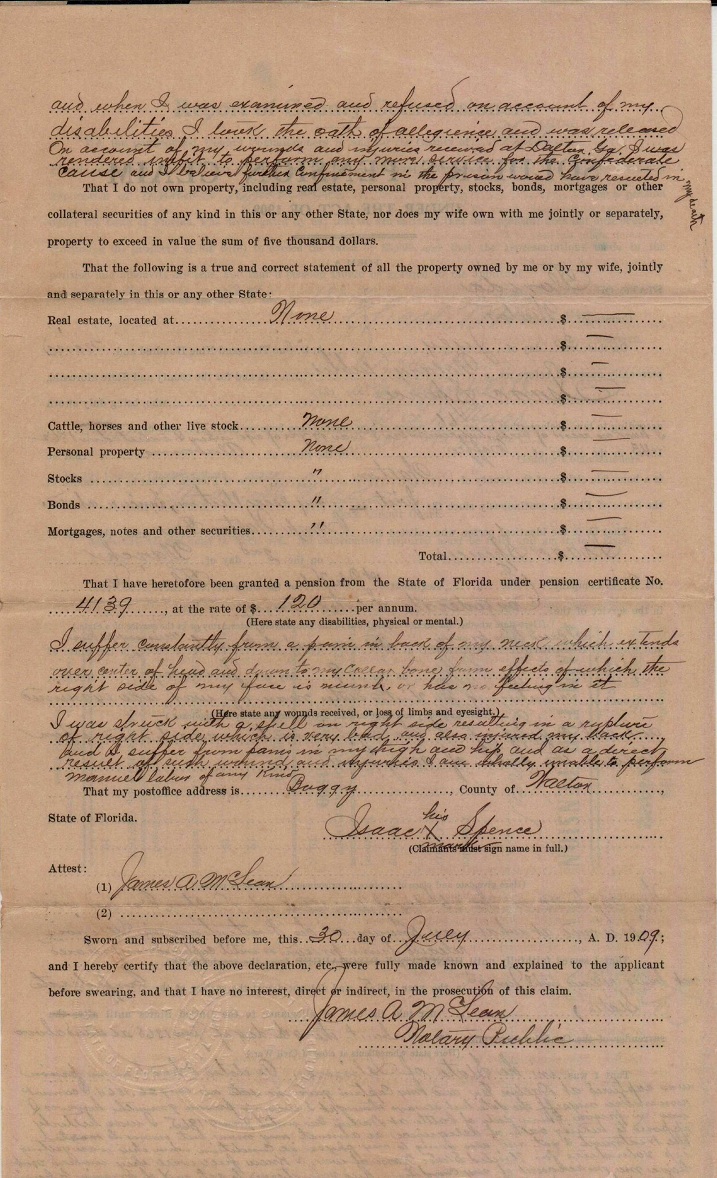 and when I was examined and refused on account of my
disabilities I took the oath of allegience and was released
On account of my wounds and injuries received at Dalton Ga. I was
rendered unfit to perform any more service for the Confederate
cause and I believe further confinement in the prison would have resulted in
my death
That I do not own property, including real estate, personal property, stocks, bonds, mortgages or other
collateral securities of any kind in this or any other State, nor does my wife own with me jointly or separately,
property to exceed in value the sum of five thousand dollars.
That the following is a true and correct statement of all the property owned by me or by my wife, jointly
and separately in this or any other State:
Real estate, located at None $ —
$ —
$ —
$ —
Cattle, horses and other live stock None $ —
Personal property None $ —
Stocks " $ —
Bonds " $ —
Mortgages, notes and other securities " $ —
Total $ —
That I have heretofore been granted a pension from the State of Florida under pension certificate No.
4139, at the rate of $ 120 per annum.
(Here state any disabilities, physical or mental.)
I suffer constantly from a pain in back of my neck which extends
over center of head and down to my collar bone from effects of which the
right side of my face is numb, or has no feeling in it
(Here state any wounds received, or loss of limbs and eyesight.)
I was struck with a shell on right side resulting in a rupture
of right side which is very bad, and also injured my back
and I suffer from pains in my thigh and hip, and as a direct
result of such wound and injuries I am wholly unable to perform
manuel labor of any kind
That my postoffice address is Buggy, County of Walton,
State of Florida.
Isaac his X mark Spence
(Claimants must sign name in full.)
Attest:
(1) James A McLean
(2)
Sworn and subscribed before me, this 30 day of July, A. D. 1909;
and I hereby certify that the above declaration, etc., were fully made known and explained to the applicant
before swearing, and that I have no interest, direct or indirect, in the prosecution of this claim.
James A McLean
Notary Public